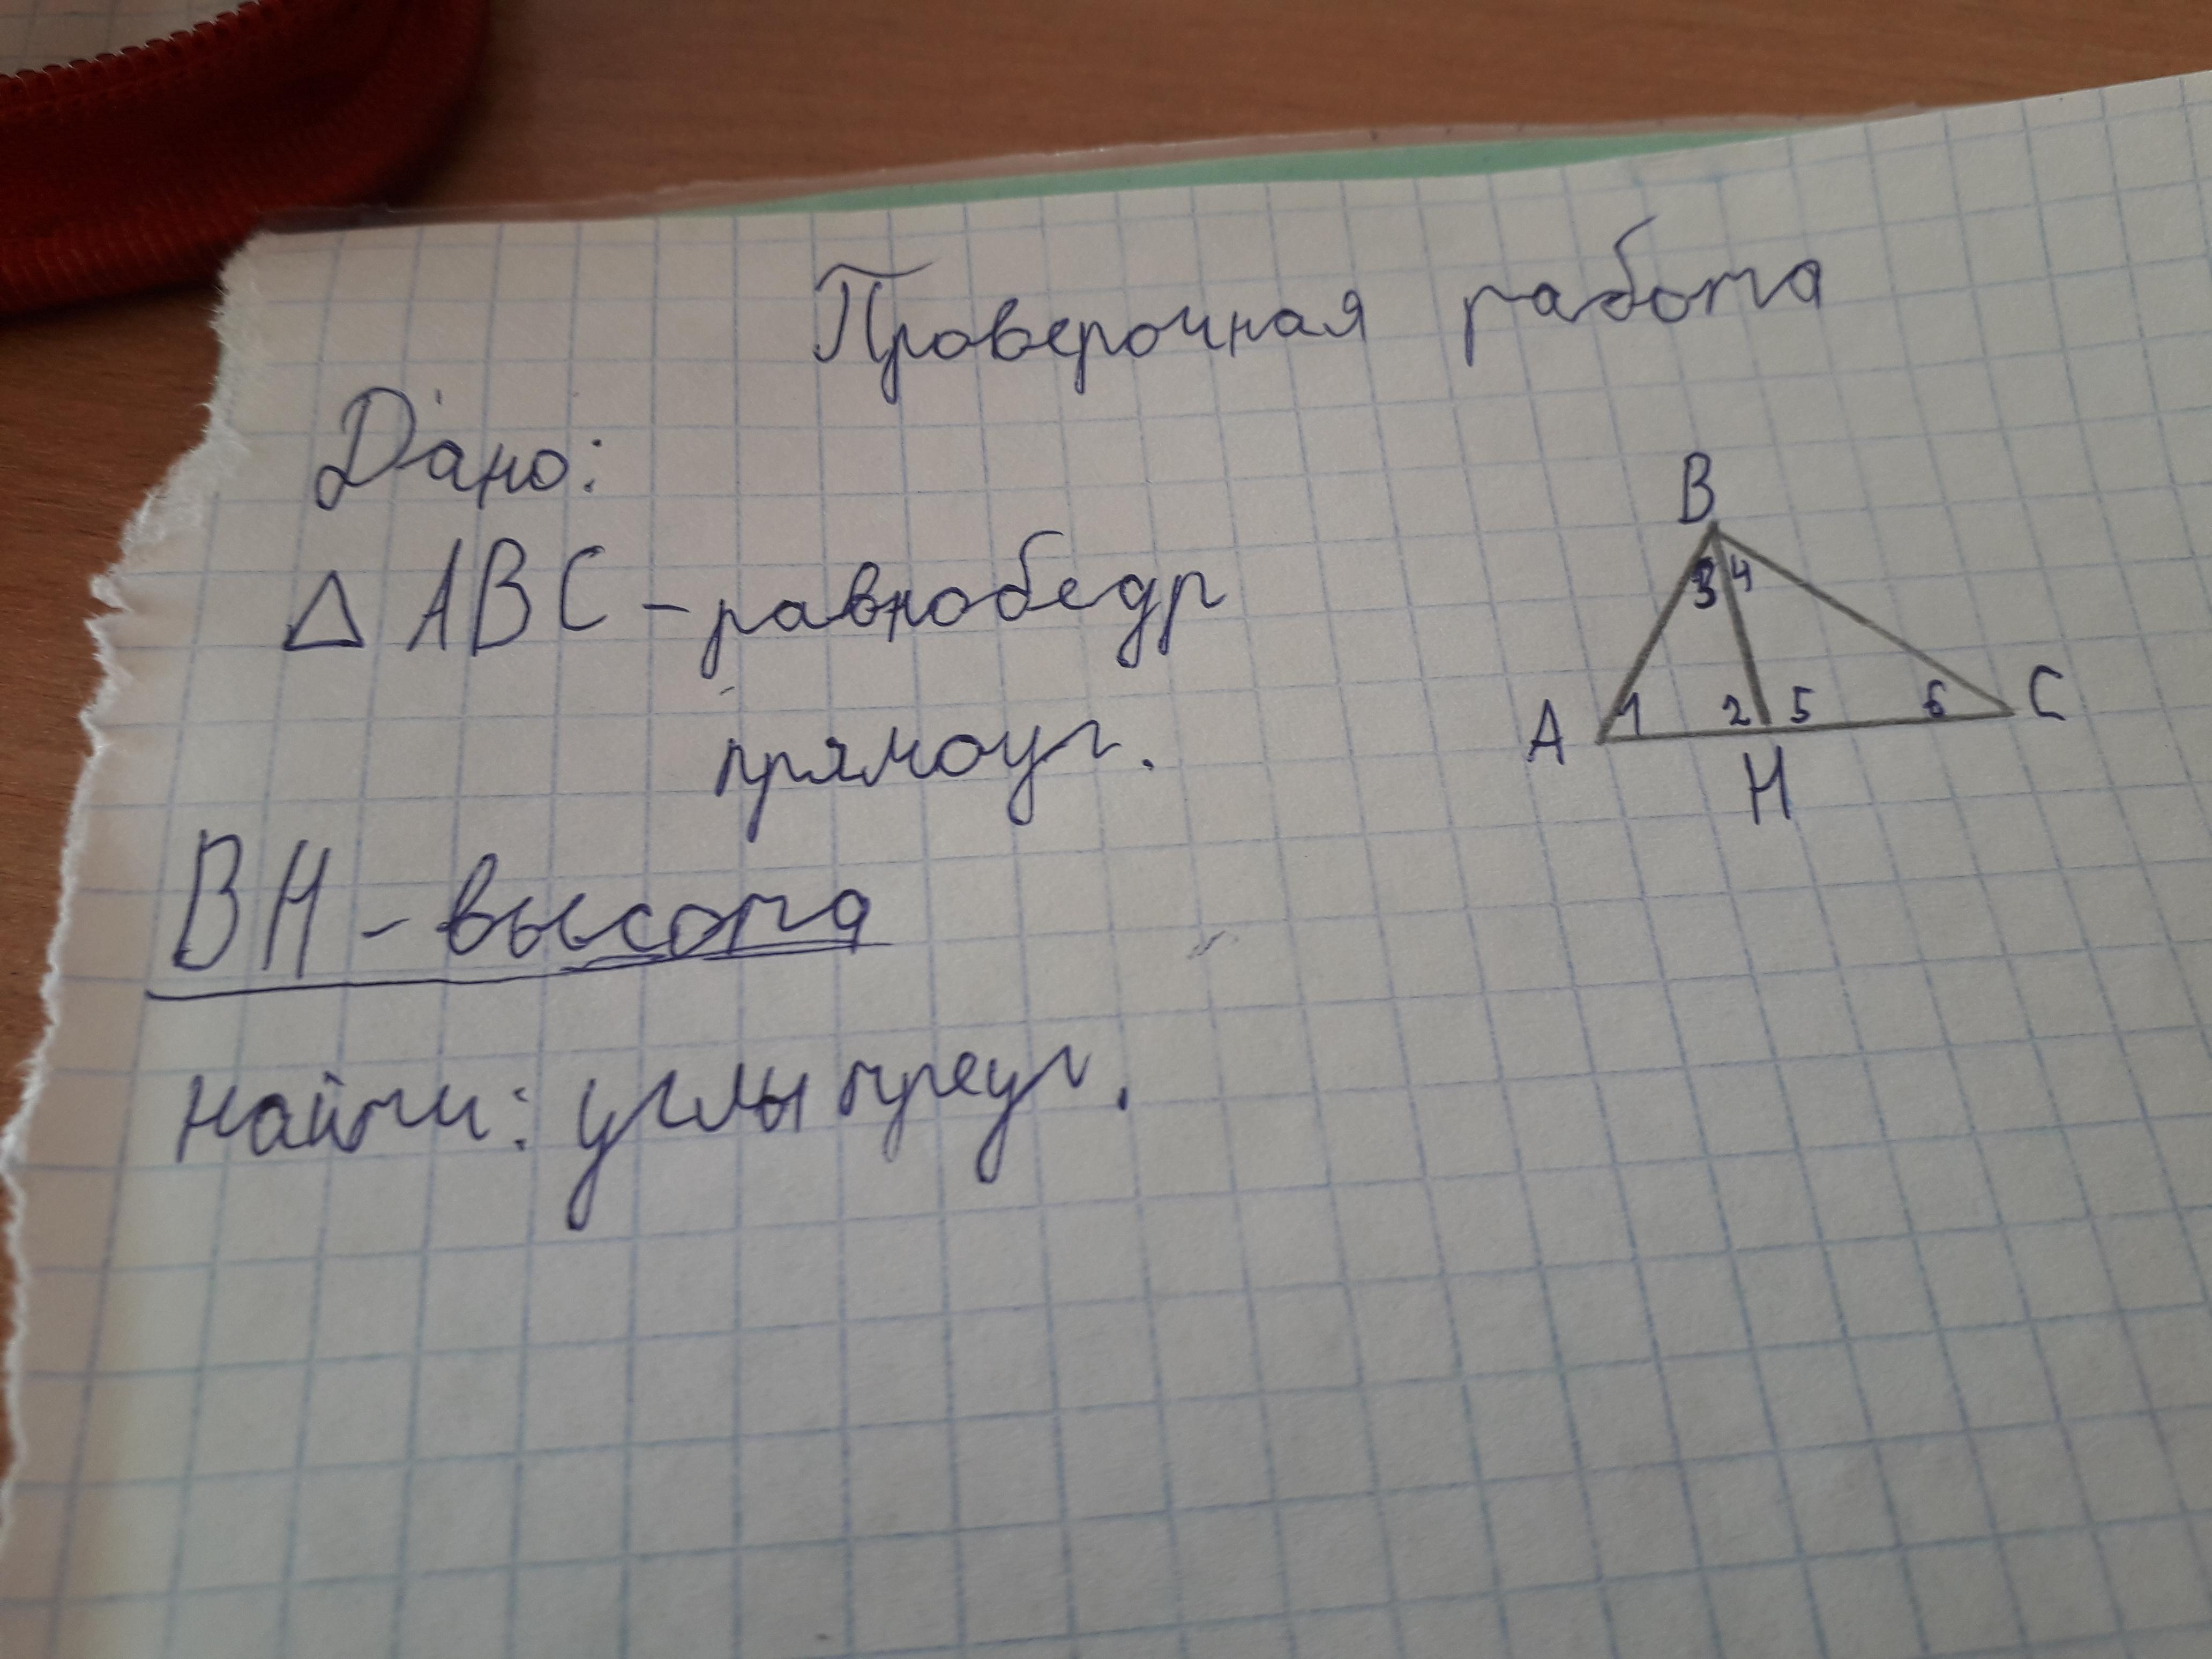 Проверочная работа
Дано:
△ ABC - равнобедр
прямоуг.
BH - высота
найти: углы треуг.
B
3 4
A 1 2 5 6 C
H